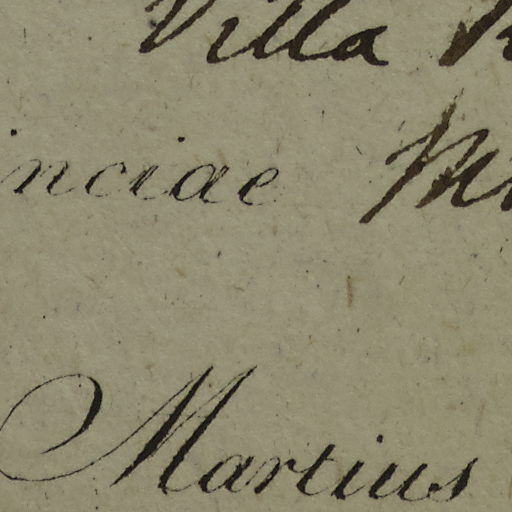 Villa
inciae
Martius